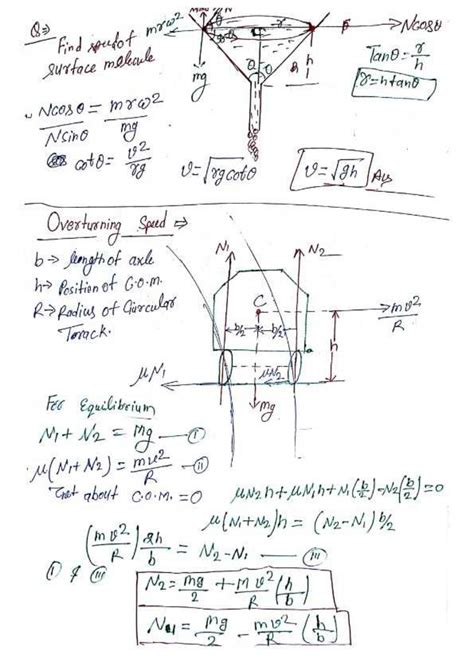 Q⇒ Find speed of surface molecule
mrω²
Ncosθ
r
θ θ
h
mg
Tanθ = r/h
r = h tanθ
Ncosθ/Nsinθ = mrω²/mg
cotθ = v²/rg
v = √rg cotθ
v = √gh Ans
Overturning Speed ⇒
b → length of axle
h → Position of C.O.M.
R → Radius of Circular Track.
N₁
N₂
C
b/2
b/2
mv²/R
h
μN₁
μN₂
mg
For Equilibrium
N₁ + N₂ = mg —(I)
μ(N₁+N₂) = mv²/R —(II)
Tnet about C.O.M. = 0
μN₂h + μN₁h + N₁(b/2) - N₂(b/2) = 0
μ(N₁+N₂)h = (N₂-N₁)b/2
(mv²/R) 2h/b = N₂-N₁ —(III)
(I) & (III)
N₂ = mg/2 + mv²/R (h/b)
= mg/2 - mv²/R (h/b)